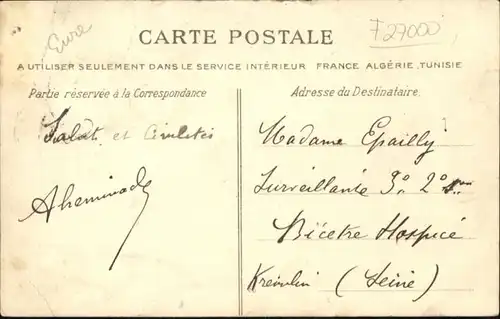 Eure
F27000
CARTE POSTALE
A UTILISER SEULEMENT DANS LE SERVICE INTÉRIEUR FRANCE ALGÉRIE, TUNISIE
Partie réservée à la Correspondance
Adresse du Destinataire.
Salut et Civilités
Madame Epailly
Surveillante 3º 2º
Bicetre Hospice
Kremlin (Seine)